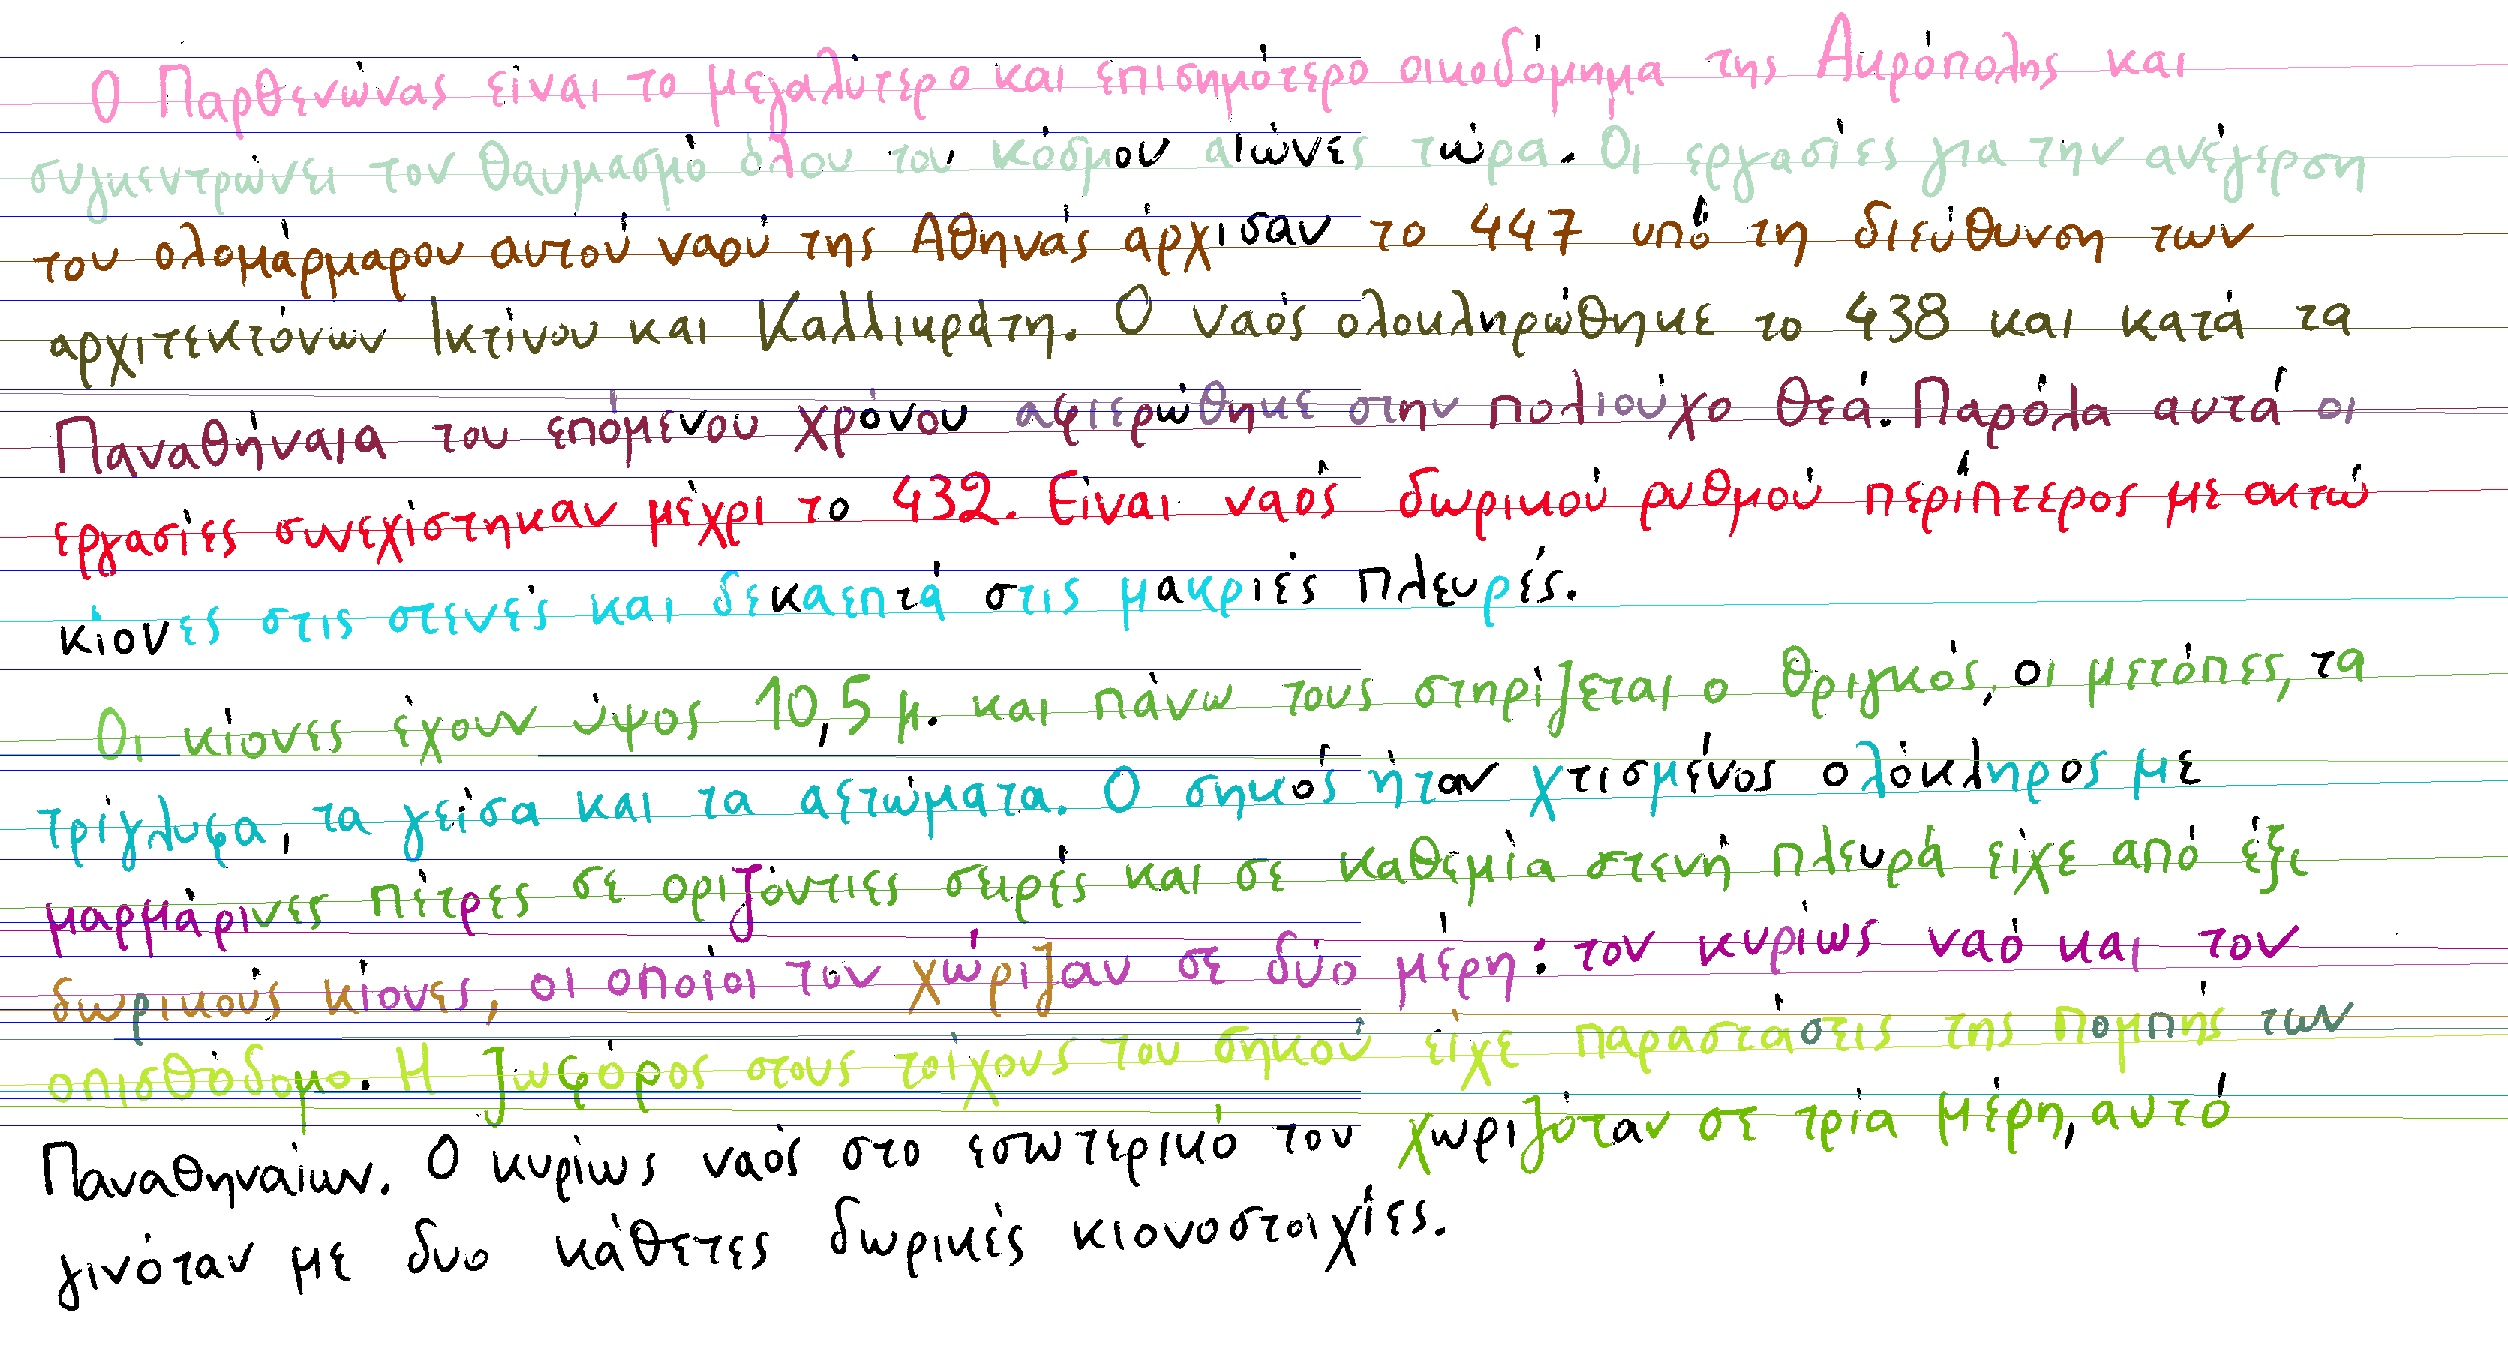 Ο Παρθενώνας είναι το μεγαλύτερο και επισημότερο οικοδόμημα της Ακρόπολης και
συγκεντρώνει τον θαυμασμό όλου του κόσμου αιώνες τώρα. Οι εργασίες για την ανέγερση
του ολομάρμαρου αυτού ναού της Αθηνάς άρχισαν το 447 υπό τη διεύθυνση των
αρχιτεκτόνων Ικτίνου και Καλλικράτη. Ο ναός ολοκληρώθηκε το 438 και κατά τα
Παναθήναια του επόμενου χρόνου αφιερώθηκε στην πολιούχο θεά. Παρόλα αυτά οι
εργασίες συνεχίστηκαν μέχρι το 432. Είναι ναός δωρικού ρυθμού περίπτερος με οκτώ
κίονες στις στενές και δεκαεπτά στις μακριές πλευρές.
Οι κίονες έχουν ύψος 10,5 μ. και πάνω τους στηρίζεται ο θριγκός, οι μετόπες, τα
τρίγλυφα, τα γείσα και τα αετώματα. Ο σηκός ήταν χτισμένος ολόκληρος με
μαρμάρινες πέτρες σε οριζόντιες σειρές και σε καθεμία στενή πλευρά είχε από έξι
δωρικούς κίονες, οι οποίοι τον χώριζαν σε δύο μέρη: τον κυρίως ναό και τον
οπισθόδομο. Η ζωφόρος στους τοίχους του σηκού είχε παραστάσεις της πομπής των
Παναθηναίων. Ο κυρίως ναός στο εσωτερικό του χωριζόταν σε τρία μέρη, αυτό
γινόταν με δυο κάθετες δωρικές κιονοστοιχίες.